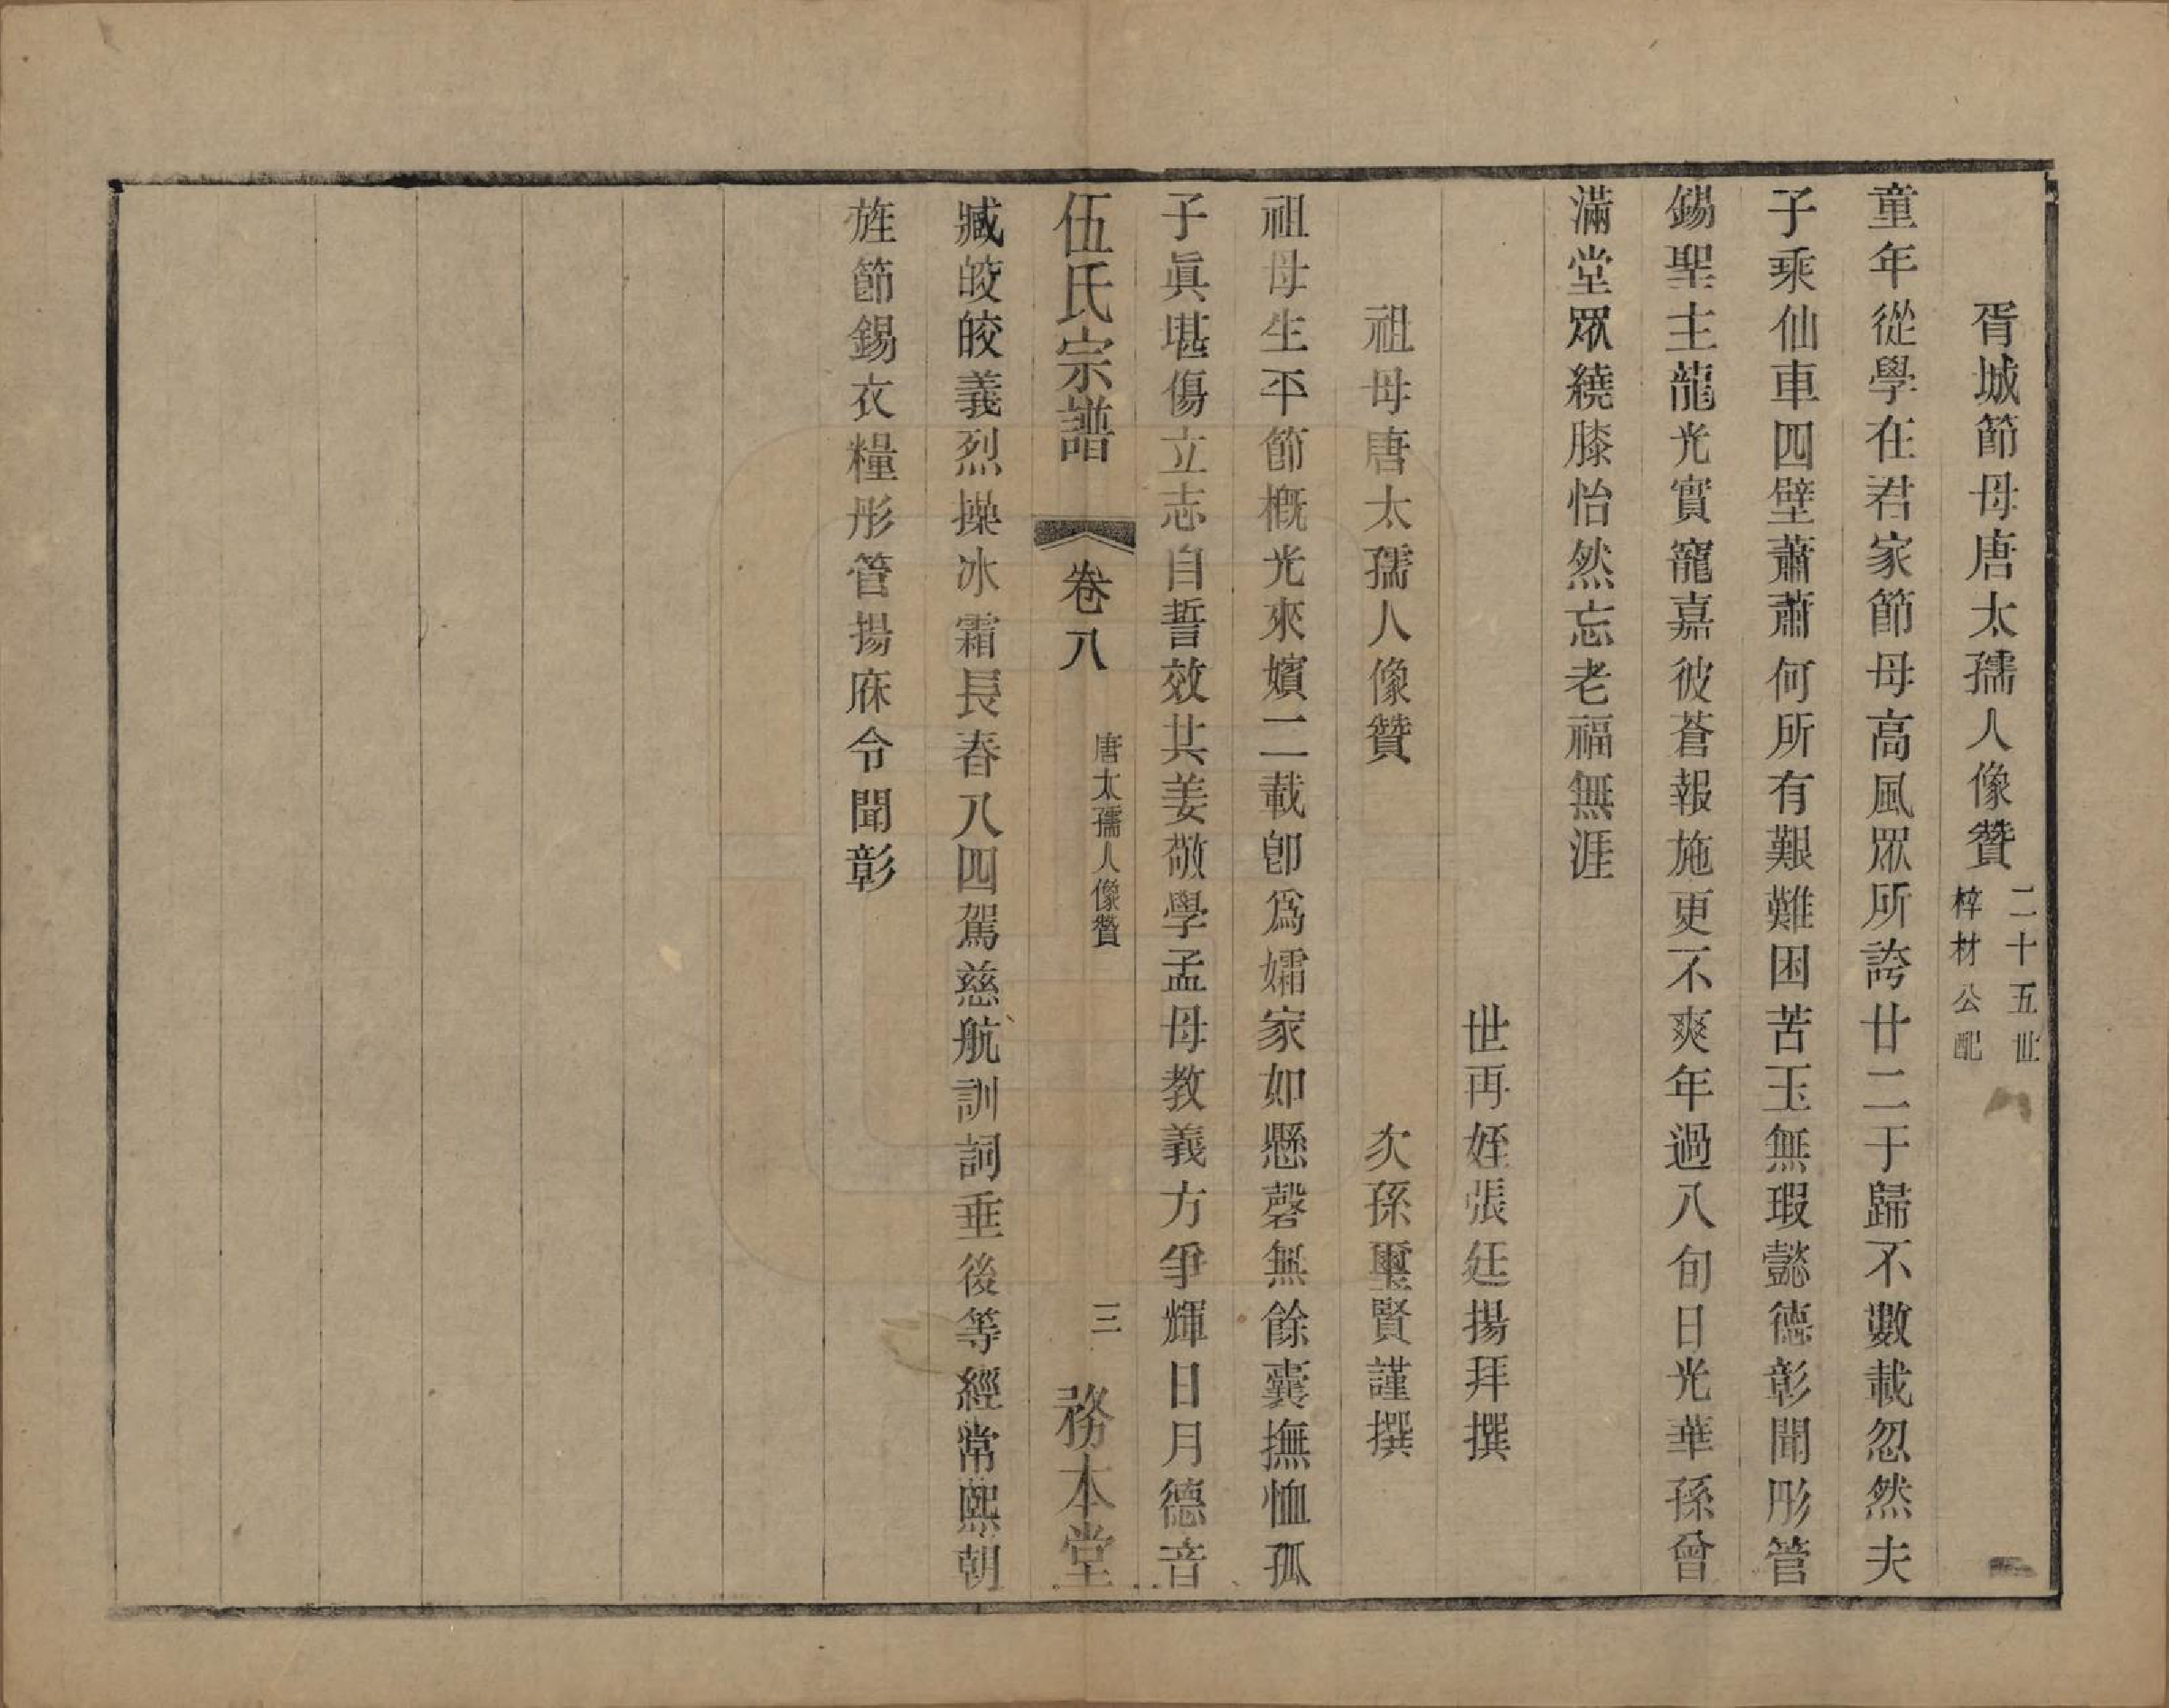 胥城節母唐太孺人像贊 二十五世 梓材公配
童年從學在君家節母高風眾所誇廿二于歸不數載忽然夫
子乘仙車四壁蕭蕭何所有艱難困苦玉無瑕懿德彰聞彤管
錫聖主龍光實寵嘉彼蒼報施更不爽年過八旬日光華孫曾
滿堂眾繞膝怡然忘老福無涯
世再姪張廷揚拜撰
祖母唐太孺人像贊 次孫璽賢謹撰
祖母生平節概光來嬪二載卽為孀家如懸磬無餘囊撫恤孤
子眞堪傷立志自誓效共姜敬學孟母教義方爭輝日月德音
伍氏宗譜 卷八 唐太孺人像贊 三 務本堂
臧皎皎義烈操冰霜長春八四駕慈航訓詞垂後等經常熙朝
旌節錫衣糧彤管揚庥令聞彰